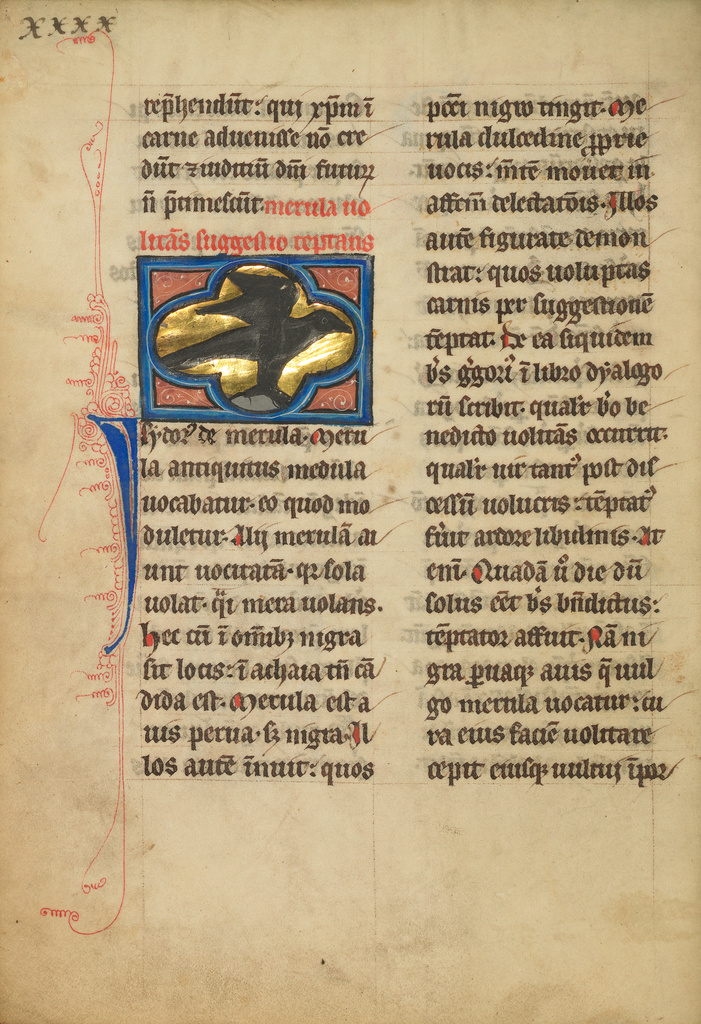 xxxx
rep̄hendūt: qui xp̄m ī
carne aduenisse nō cre
dūt ⁊ iuditiū dn̄i futurꝝ
n̄ p̄timescūt. merula uo
litās suggestio teptans
Isydorꝰ de merula. Meru
la antiquitus medula
uocabatur. eo quod mo
duletur. Alij merulā ai
unt uocitatā. qr sola
uolat. q̄i mera uolans.
hec cū ī om̄ibꝫ nigra
sit locis: ī achaia tn̄ cā
dida est. Merula est a
uis perua. sꝫ nigra. Il
los autē īnuit: quos
pcc̄i nigro tingit. Me
rula dulcedine ꝓprie
uocis: m̄tē mouet in
affectū delectatōis. Illos
autē figurate demon
strat: quos uoluptas
carnis per suggestionē
tēptat. De ea siquidem
b̄s g̓gori᷒ ī libro dyalogo
rū scribit. qual'r b̄o be
nedicto uolitās occurrit.
qual'r uir tantꝰ post dis
cessū uolucris: tēptatꝰ
fūit ardore libidinis. It
eni. Quadā ū die dū
solus eēt b̄s bn̄dictus:
tēptator affuit. Nā ni
gra ꝑuaqꝫ auis q̄ uul
go merula uocatur: cir
ca eius faciē uolitare
cepit eiusqꝫ uultui īpor